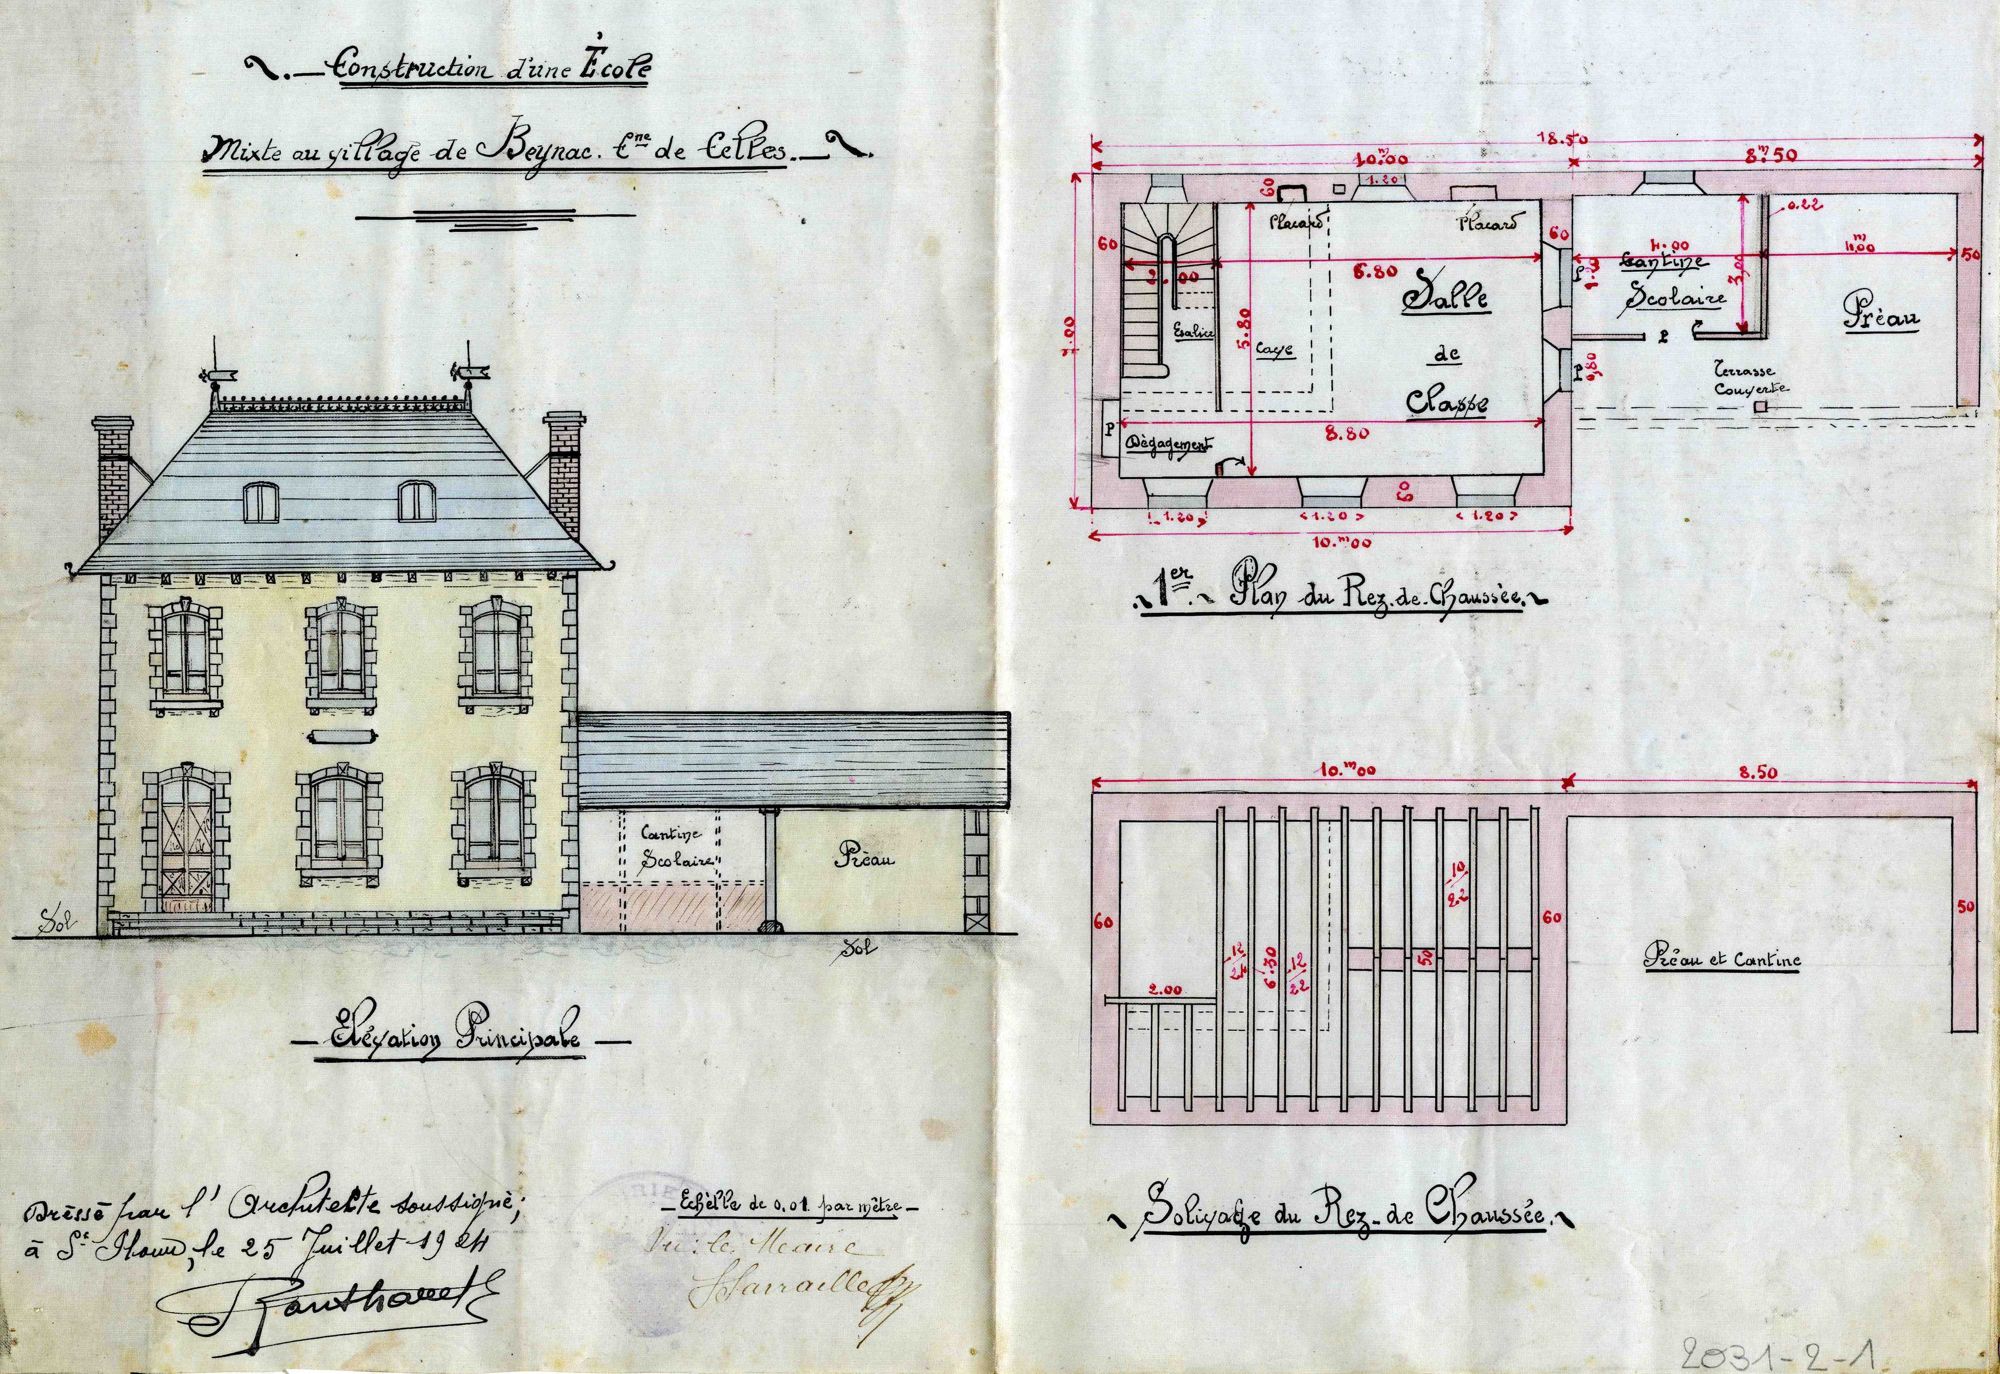 Construction d'une École
Mixte au village de Beynac. Cne de Celles.
Cantine
Scolaire
Préau
Sol
Sol
Élévation Principale
Dressé par l'Architecte soussigné;
à St. , le 25 Juillet 1924
Echelle de 0,01 par mètre
Vu: le Maire
18.50
10.m00
8.m50
60
1.20
Placard
Placard
60
60
0.22
4.00
4.m00
50
2.00
6.80
1.20
P
Cantine
Scolaire
3,00
Salle
Préau
7.00
5.80
Escalier
Cave
de
P
P
0,80
Terrasse
Couverte
Classe
8.80
P
Dégagement
60
1.20
1.20
1.20
10.m00
1er. Plan du Rez-de-Chaussée.
10.m00
8.50
10
22
60
60
50
12
24
6.30
12
22
50
Préau et Cantine
2.00
Solivage du Rez-de Chaussée.
2031-2-1